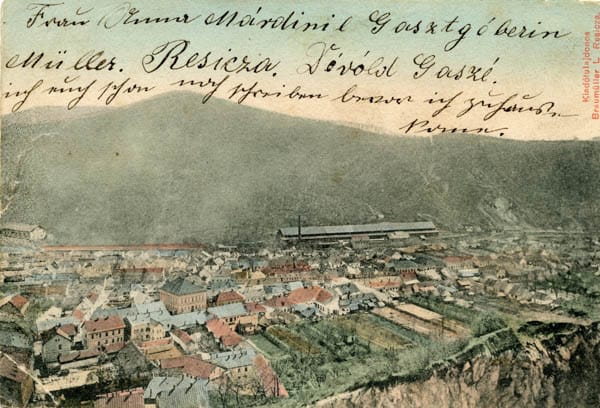 Frau Anna Márdinil Gasztgóberin
Müller. Resicza. Dévóld Gaszé.
euch schon noch schreiben bevor ich zuhause
kome.
Kiadótulajdonos
Braumüller L. Resicza.